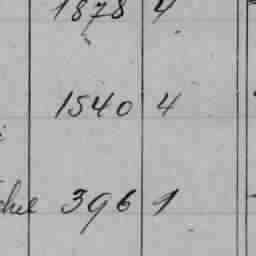 1878 4
1540 4
396 1